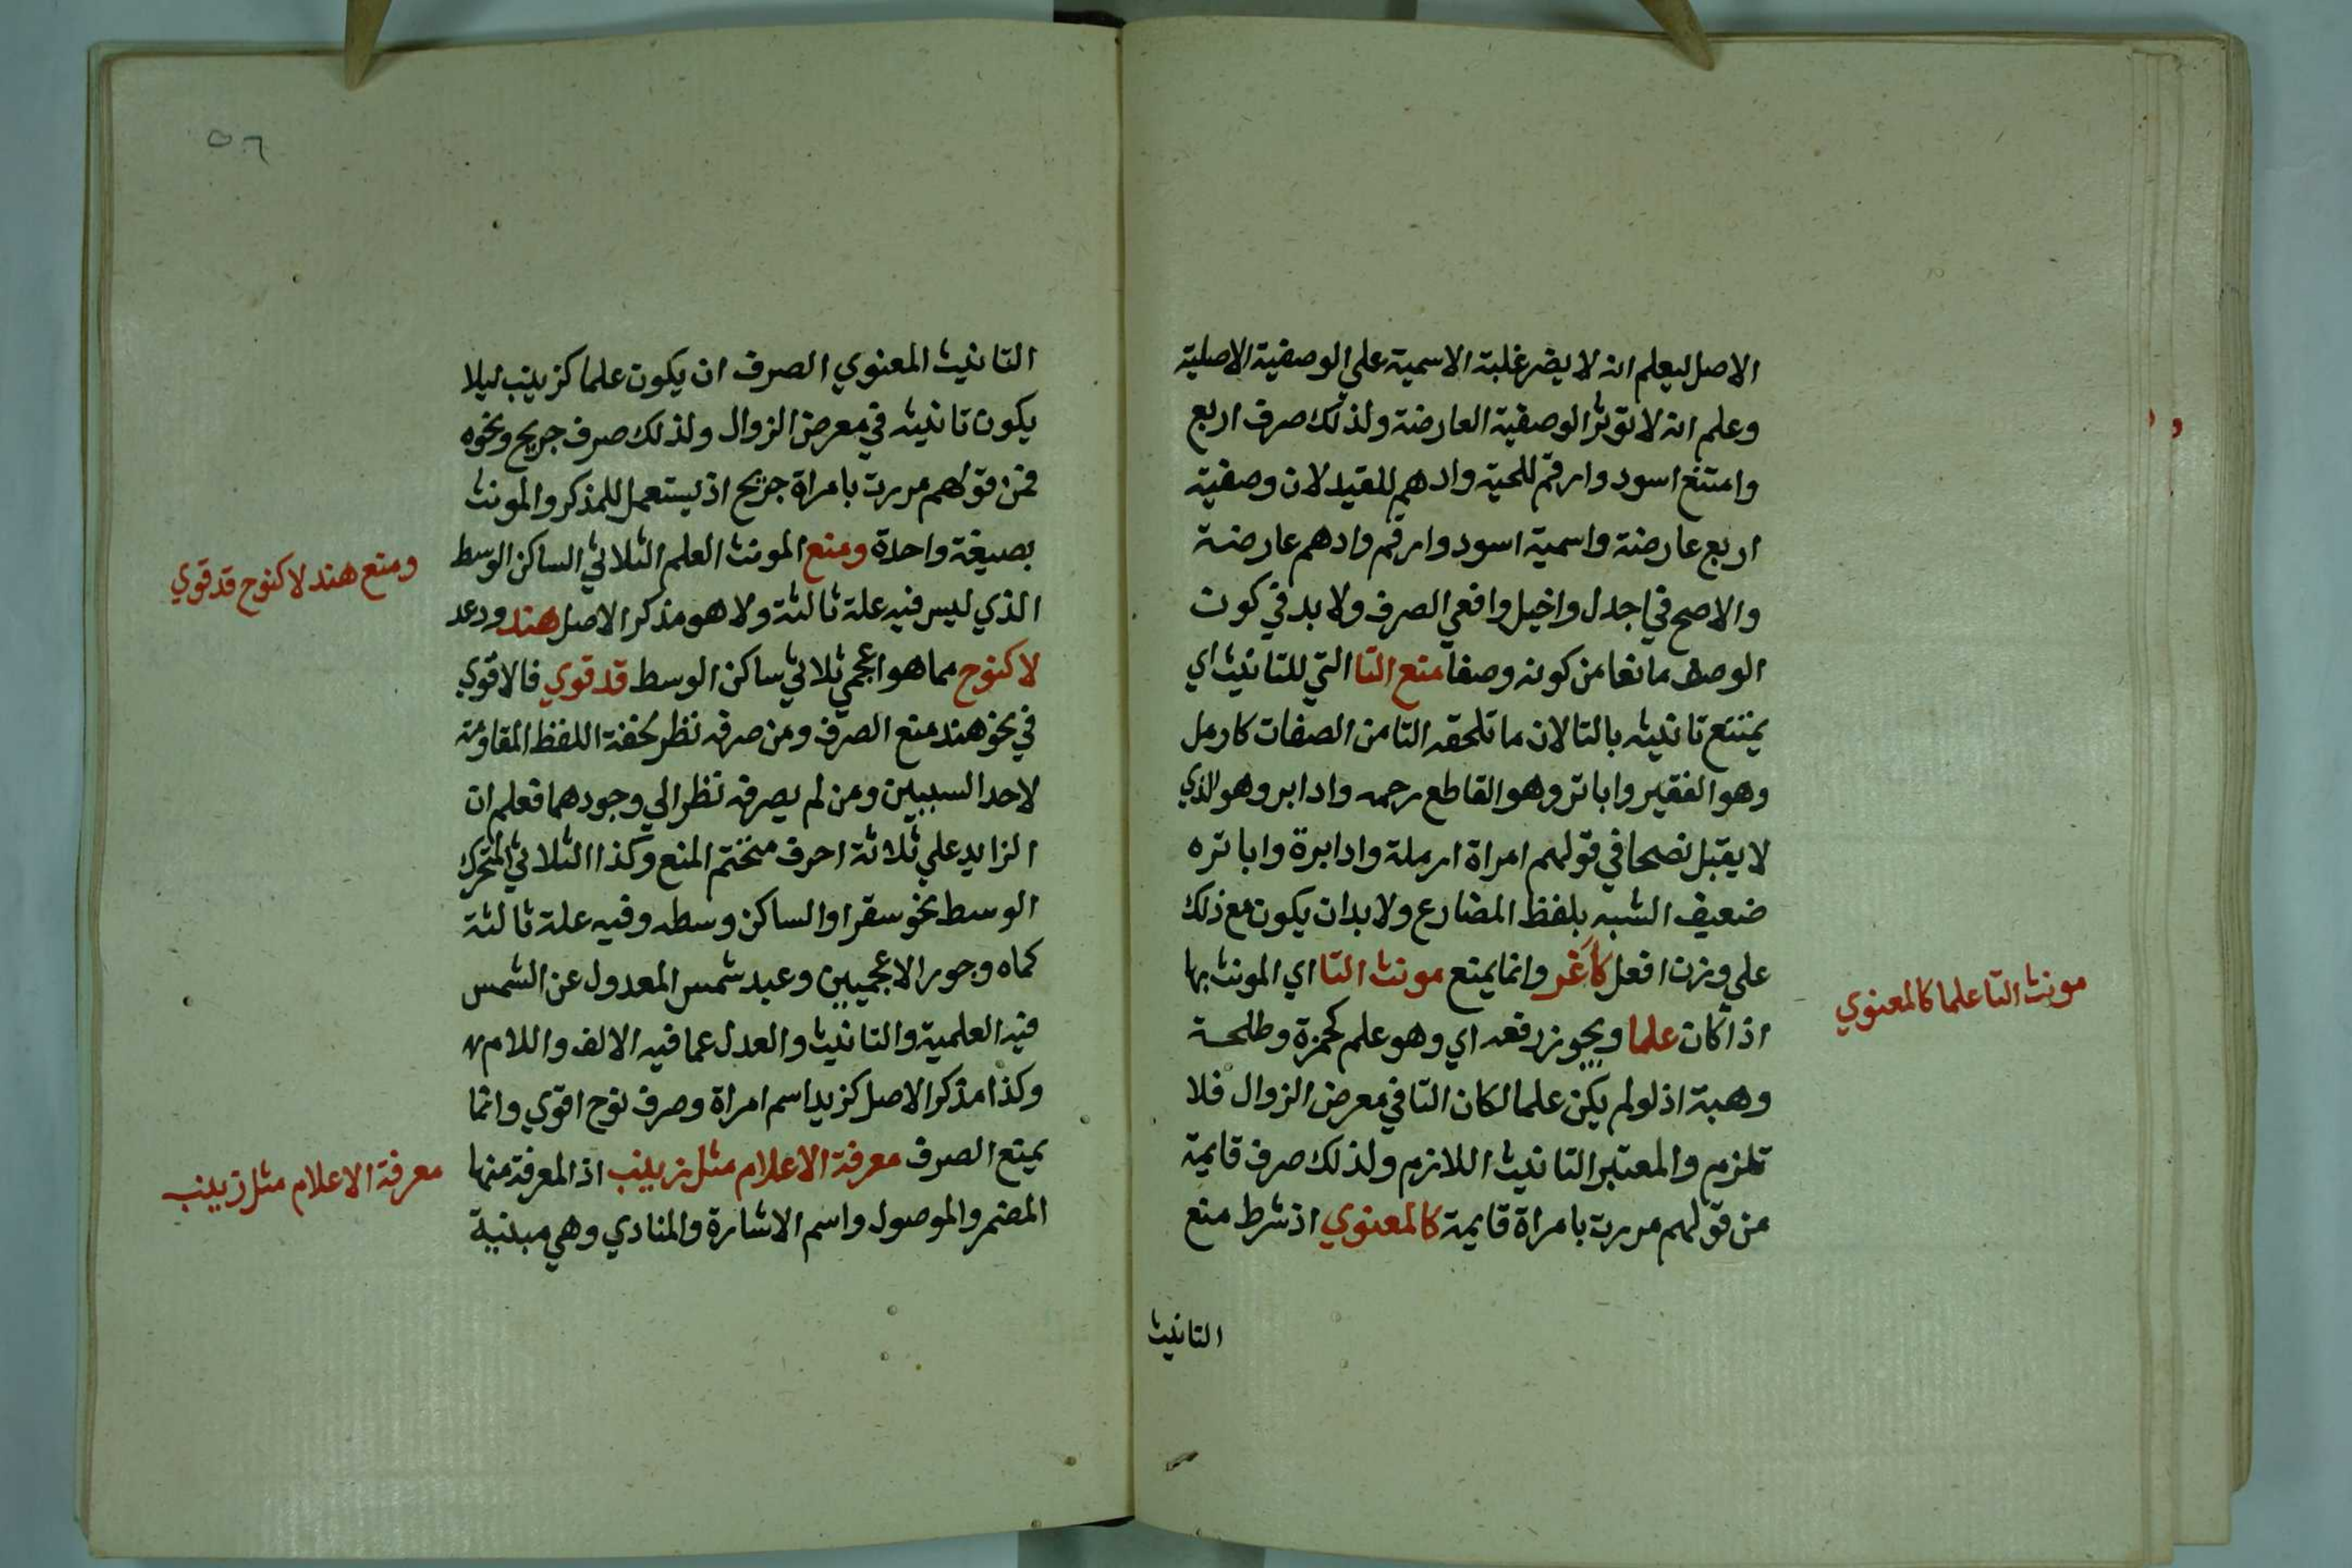 الاصل ليعلم انه لا يضر غلبة الاسمية علي الوصفية الاصلية
وعلم انه لا توثر الوصفية العارضة ولذلك صرف اربع
وامتنع اسود وارقم للحية وادهم للقيد لان وصفية
اربع عارضة واسمية اسود وارقم وادهم عارضة
والاصح في اجدل واخيل وافعي الصرف ولا بد في كون
الوصف مانعا من كونه وصفا منع التا التي للتانيث اي
يمتنع تانيثه بالتا لان ما تلحقه التا من الصفات كارمل
وهو الفقير واباتر وهو القاطع رحمه وادابر وهو الذي
لا يقبل نصحا في قولهم امراة ارملة وادابرة واباتره
ضعيف الشبه بلفظ المضارع ولا بد ان يكون مع ذلك
علي وزن افعل كأغر وانما يمنع مونث التا اي المونث بها
اذا كان علما ويجوز رفعه اي وهو علم كحمزة وطلحة
وهبة اذ لو لم يكن علما لكان التا في معرض الزوال فلا
تلزم والمعتبر التانيث اللازم ولذلك صرف قايمة
من قولهم مررت بامراة قايمة كالمعنوي اذ شرط منع
التانيث
مونث التا علما كالمعنوي
٥٦
التانيث المعنوي الصرف ان يكون علما كزينب ليلا
يكون تانيثه في معرض الزوال ولذلك صرف جريح ونحوه
فمن قولهم مررت بامراة جريح اذ يستعمل للمذكر والمونث
بصيغة واحدة ومنع المونث العلم الثلاثي الساكن الوسط
الذي ليس فيه علة ثالثة ولا هو مذكر الاصل هند ودعد
لا كنوح مما هو اعجمي ثلاثي ساكن الوسط قد قوي فالاقوي
في نحو هند منع الصرف ومن صرفه نظر لخفة اللفظ المقاومة
لاحد السببين ومن لم يصرفه نظر الي وجودهما فعلم ان
الزايد علي ثلاثة احرف متحتم المنع وكذا الثلاثي المتحرك
الوسط نحو سقر او الساكن وسطه وفيه علة ثالثة
كماه وجور الاعجميين وعبد شمس المعدول عن الشمس
فيه العلمية والتانيث والعدل عما فيه الالف واللام
وكذا مذكر الاصل كزيد اسم امراة وصرف نوح اقوي وانما
يمنع الصرف معرفة الاعلام مثل زينب اذ المعرفة منها
المضمر والموصول واسم الاشارة والمنادي وهي مبنية
ومنع هند لا كنوح قد قوي
معرفة الاعلام مثل زينب